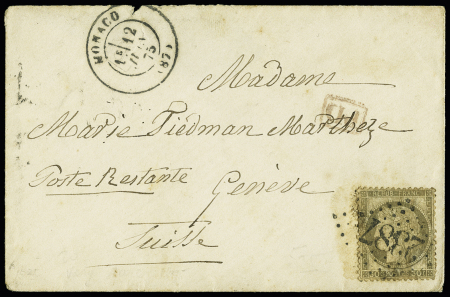 MONACO (87)
1E/12
JUIN
75
Madame
P.D.
Marie Tiedman Martheze
Poste Restante
Genève
Suisse
2387